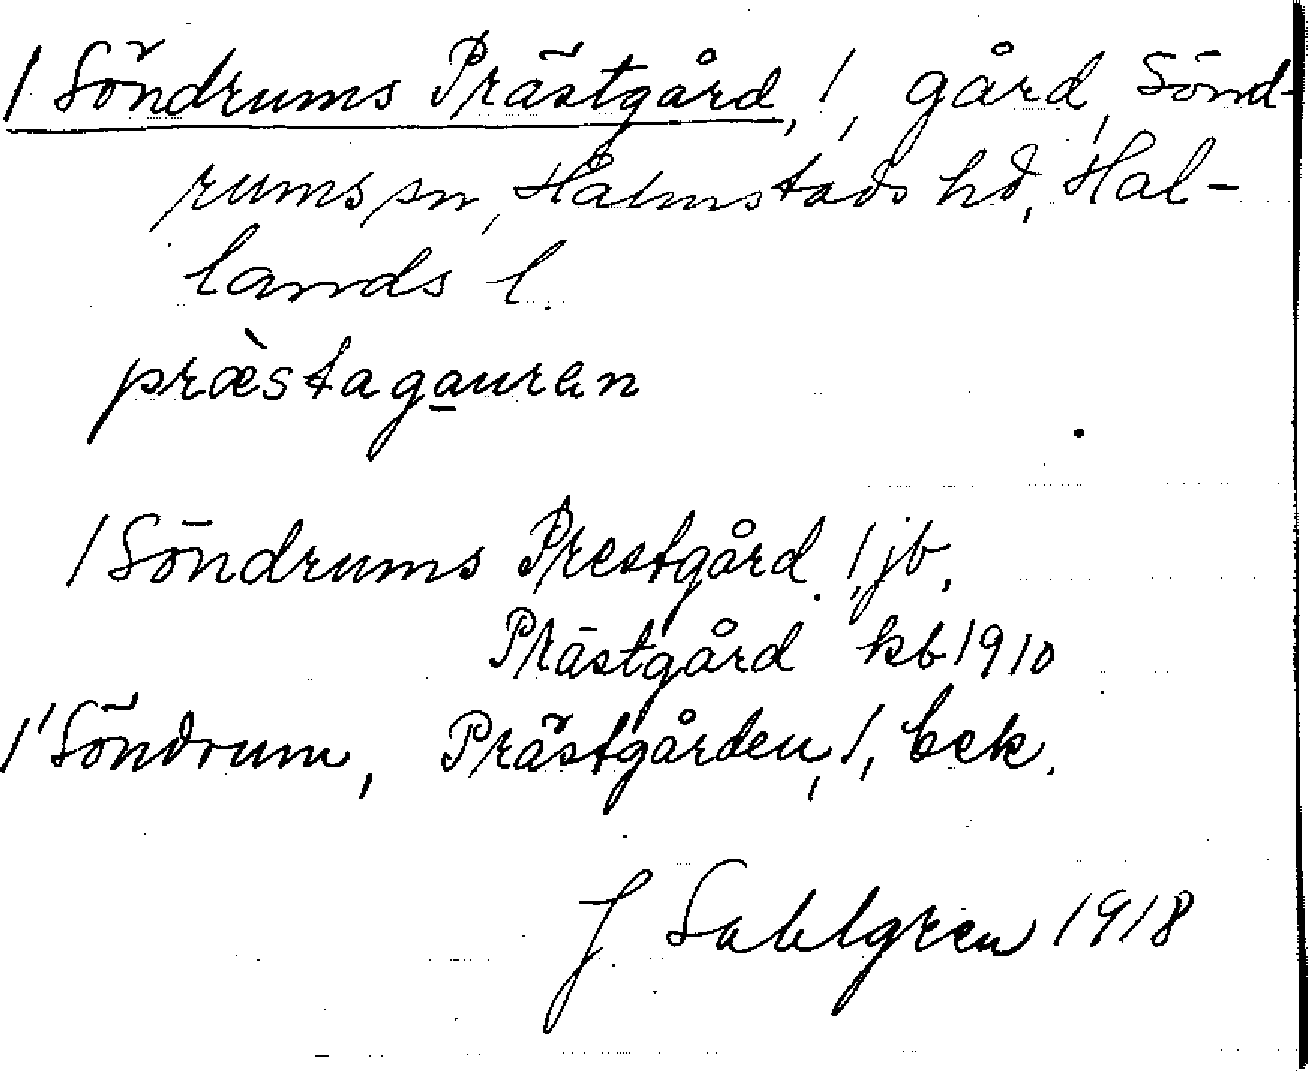 / Söndrums Prästgård, /, gård, Sönd-
rums sn, Halmstads hd, Hal-
lands l.
præ̀stagau̱ran
/ Söndrums Prestgård, / jb.
Prästgård kb 1910
/ Söndrum, Prästgården, /, bek.
J Sahlgren 1918